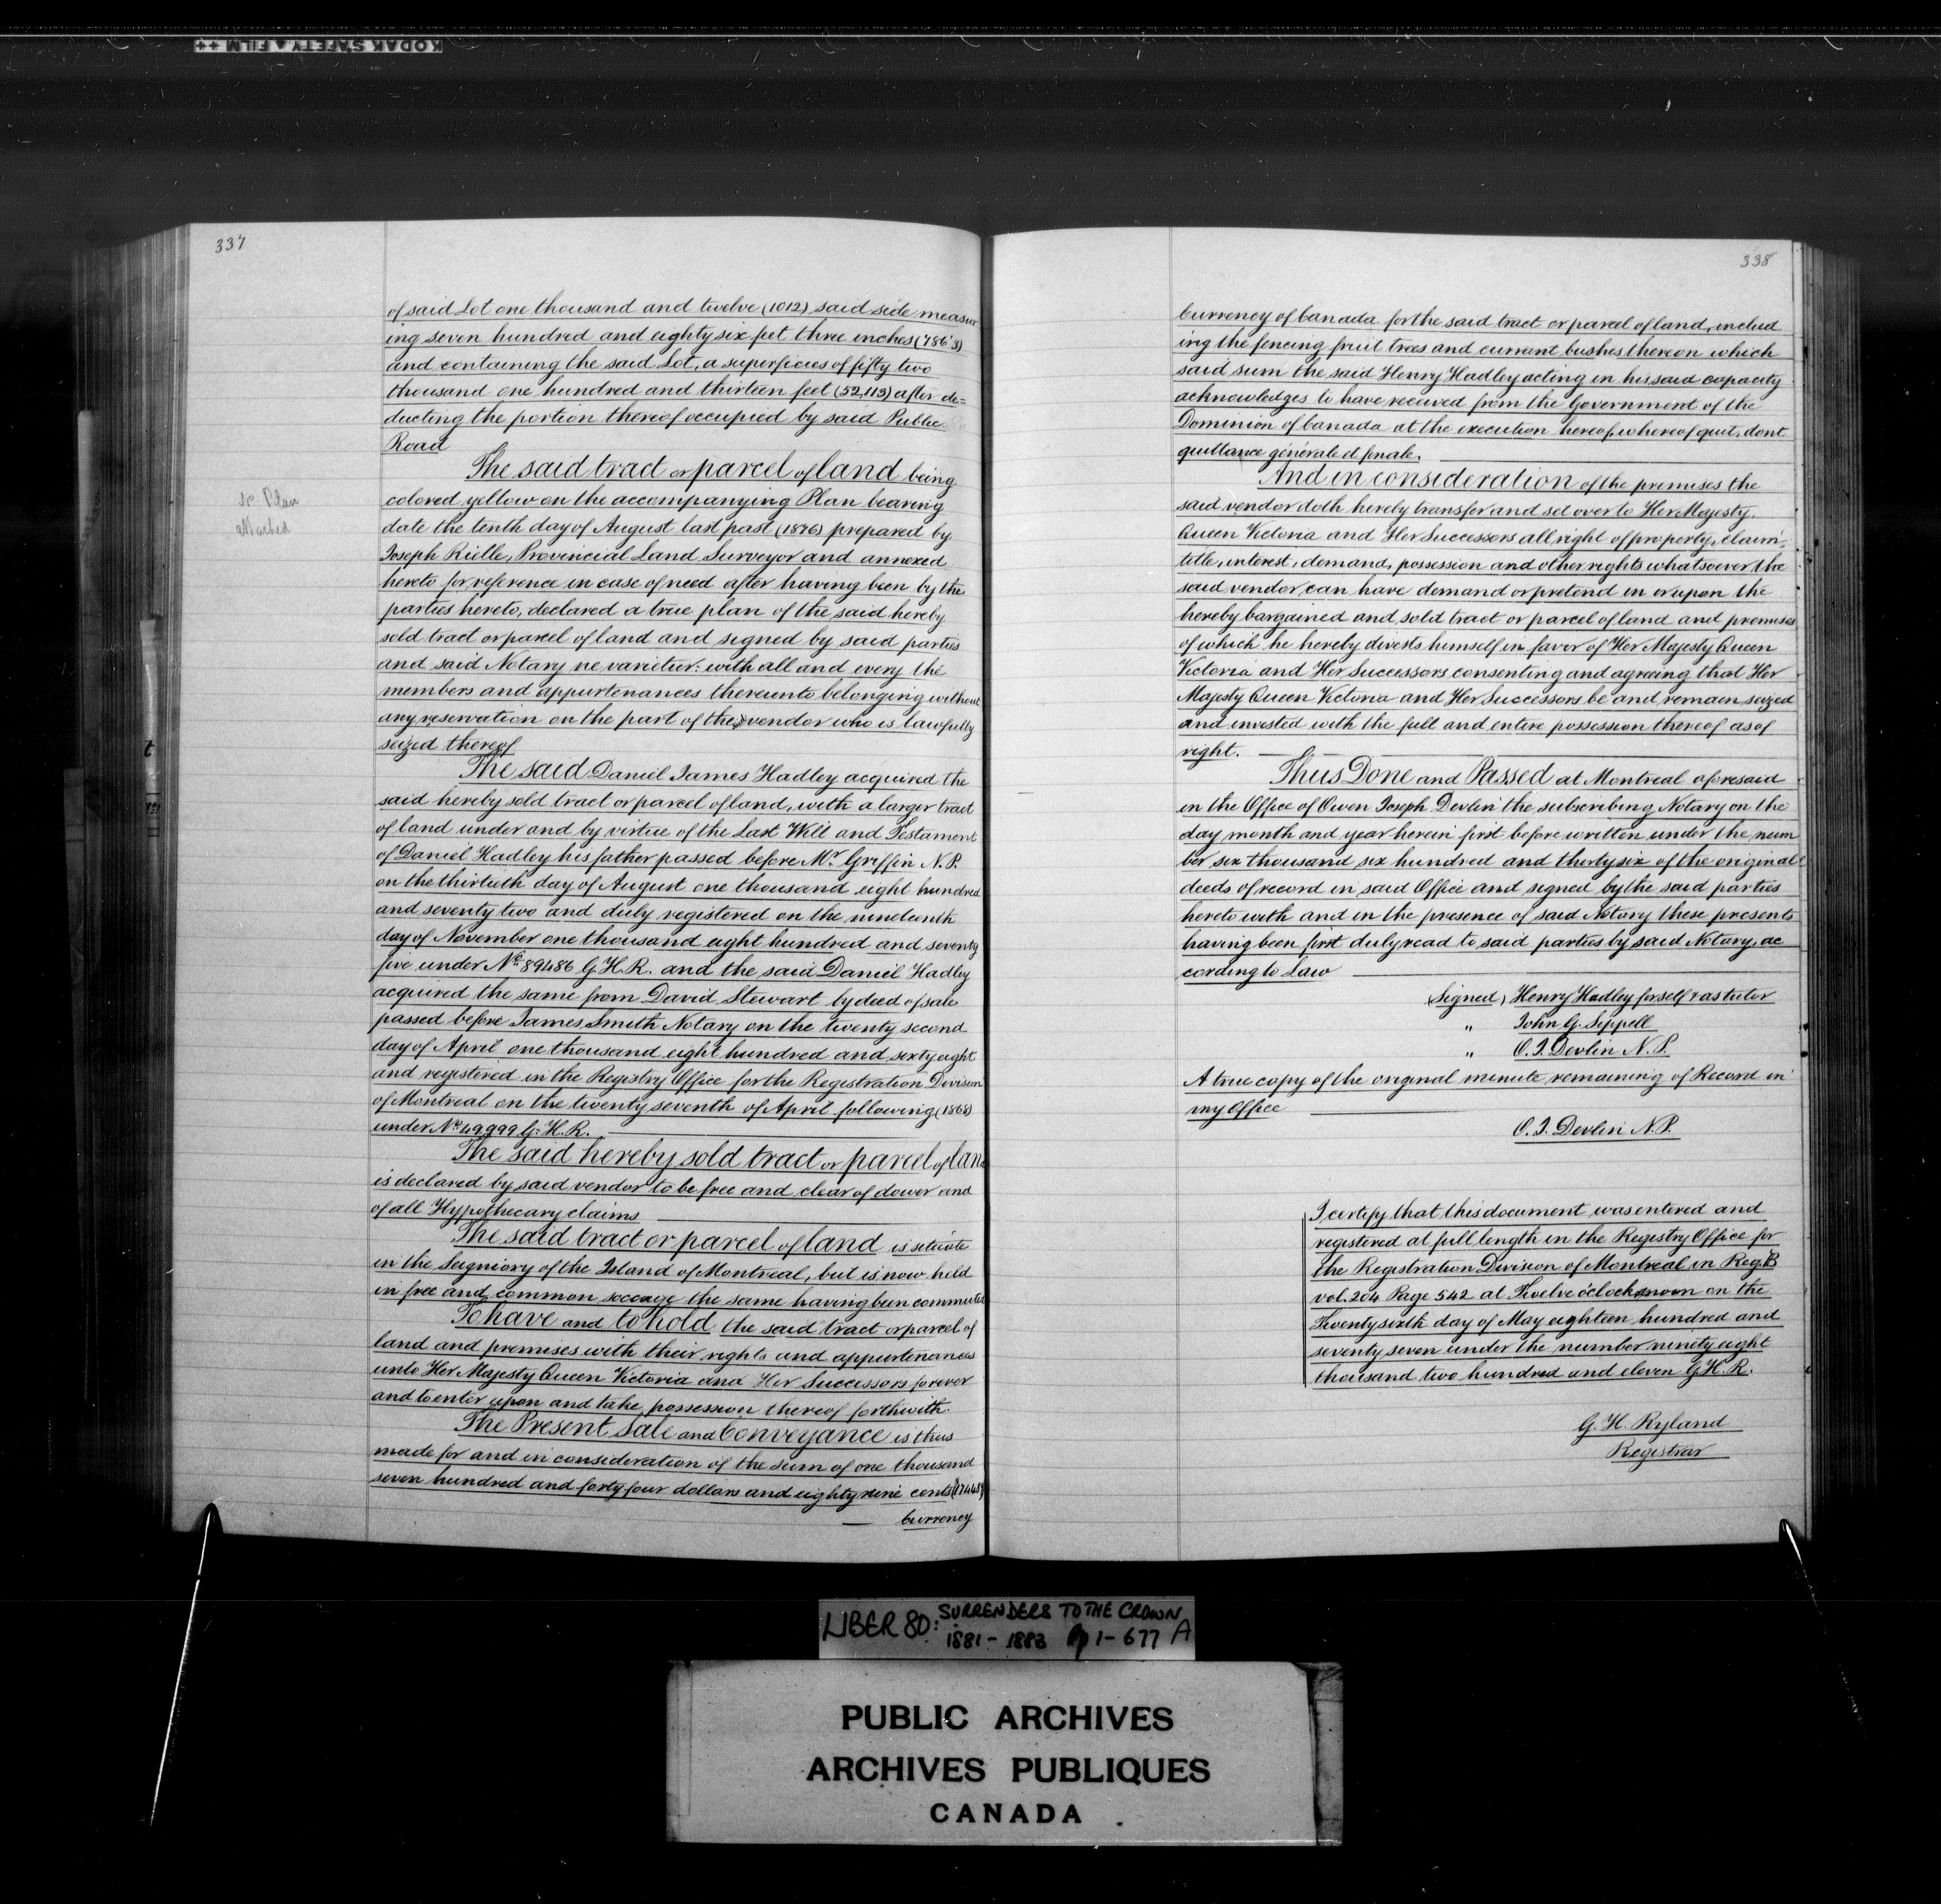 KODAK SAFETY FILM ++
337
of said Lot one thousand and twelve (1012) said side measur
ing seven hundred and eighty six feet three inches (786'3)
and containing the said Lot, a superficies of fifty two
thousand one hundred and thirteen feet (52,113) after de=
ducting the portion thereof occupied by said Public
Road
The said tract or parcel of land being
colored yellow on the accompanying Plan bearing
date the tenth day of August last past (1876) prepared by
Joseph Rielle, Provincial Land Surveyor and annexed
hereto for reference in case of need after having been by the
parties hereto, declared a true plan of the said hereby
sold tract or parcel of land and signed by said parties
and said Notary ne varietur: with all and every the
members and appurtenances thereunto belonging without
any reservation on the part of the vendor who is lawfully
seized thereof
The said Daniel James Hadley acquired the
said hereby sold tract or parcel of land, with a larger tract
of land under and by virtue of the Last Will and Testament
of Daniel Hadley his father passed before Mr Griffin N.P.
on the thirtieth day of August one thousand eight hundred
and seventy two and duly registered on the nineteenth
day of November one thousand eight hundred and seventy
five under No 89486 G.H.R. and the said Daniel Hadley
acquired the same from David Stewart by deed of sale
passed before James Smith Notary on the twenty second
day of April one thousand eight hundred and sixty eight
and registered in the Registry Office for the Registration Division
of Montreal on the twenty seventh of April following (1868)
under No 49,999 G.H.R.
The said hereby sold tract or parcel of land
is declared by said vendor to be free and clear of dower and
of all Hypothecary claims
The said tract or parcel of land is situate
in the Seigniory of the Island of Montreal, but is now held
in free and common soccage the same having been commuted
To have and to hold the said tract or parcel of
land and premises with their rights and appurtenances
unto Her Majesty Queen Victoria and Her Successors forever
and to enter upon and take possession thereof forthwith.
The Present Sale and Conveyance is thus
made for and in consideration of the sum of one thousand
seven hundred and forty four dollars and eighty nine cents
Currency
Plan
attached
338
Currency of Canada for the said tract or parcel of land, includ
ing the fencing fruit trees and currant bushes thereon which
said sum the said Henry Hadley acting in his said capacity
acknowledges to have received from the Government of the
Dominion of Canada at the execution hereof, whereof quit, dont
quittance générale et finale.
And in consideration of the premises the
said vendor doth hereby transfer and set over to Her Majesty
Queen Victoria and Her Successors all right of property, claim
title, interest, demand, possession and other rights whatsoever the
said vendor can have demand or pretend in or upon the
hereby bargained and sold tract or parcel of land and premises
of which he hereby divests himself in favor of Her Majesty Queen
Victoria and Her Successors consenting and agreeing that Her
Majesty Queen Victoria and Her Successors be and remain seized
and invested with the full and entire possession thereof as of
right.
Thus Done and Passed at Montreal aforesaid
in the Office of Owen Joseph Devlin the subscribing Notary on the
day month and year herein first before written under the num
ber six thousand six hundred and thirty six of the original
deeds of record in said Office and signed by the said parties
hereto with and in the presence of said Notary these presents
having been first duly read to said parties by said Notary, ac
cording to Law
(Signed) Henry Hadley for self & as tutor
" John G. Sippell
" O.J. Devlin N.P.
A true copy of the original minute remaining of Record in
my Office
O.J. Devlin N.P.
I certify that this document was entered and
registered at full length in the Registry Office for
the Registration Division of Montreal in Reg. B
vol. 204 Page 542 at Twelve o'clock noon on the
Twenty sixth day of May eighteen hundred and
seventy seven under the number ninety eight
thousand two hundred and eleven G.H.R.
G.H. Ryland
Registrar
LIBER 80: SURRENDERS TO THE CROWN
1881 - 1883 pp 1 - 677 A
PUBLIC ARCHIVES
ARCHIVES PUBLIQUES
CANADA